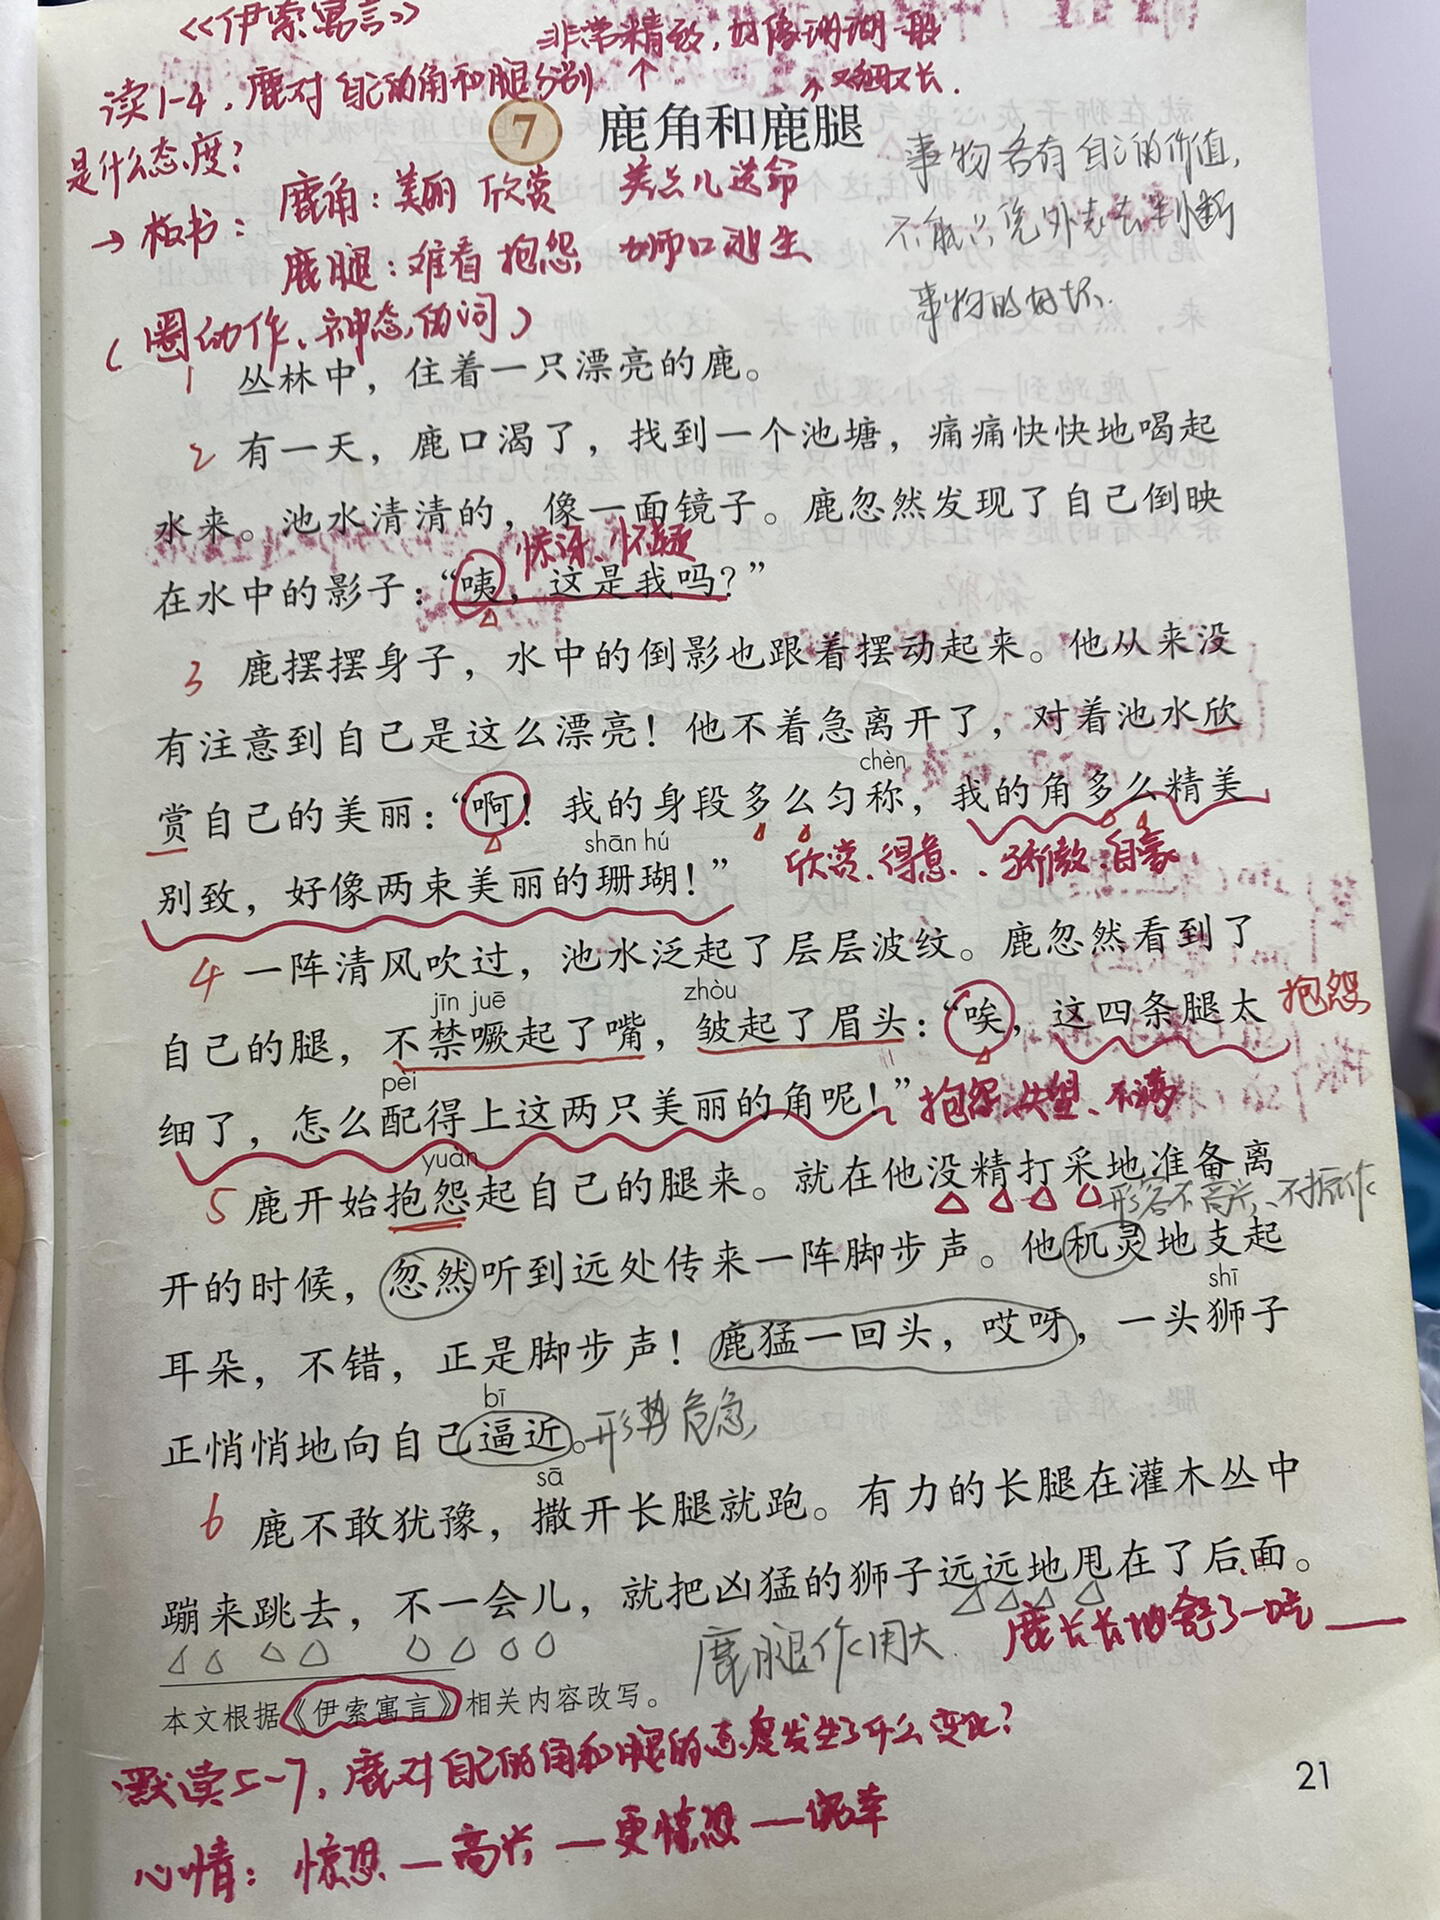 《伊索寓言》
非常精致，好像珊瑚一般
读1-4，鹿对自己的角和腿分别 ↑
↗又细又长.
是什么态度？
7 鹿角和鹿腿
→板书：鹿角：美丽 欣赏 差点儿送命
鹿腿：难看 抱怨 狮口逃生
事物各有自己的价值，
不能只凭外表去判断
事物的好坏.
（圈动作、神态的词）
1 丛林中，住着一只漂亮的鹿。
2 有一天，鹿口渴了，找到一个池塘，痛痛快快地喝起
水来。池水清清的，像一面镜子。鹿忽然发现了自己倒映
惊讶、怀疑
在水中的影子：“咦，这是我吗？”
3 鹿摆摆身子，水中的倒影也跟着摆动起来。他从来没
有注意到自己是这么漂亮！他不着急离开了，对着池水欣
chèn
赏自己的美丽：“啊！我的身段多么匀称，我的角多么精美
shān hú
别致，好像两束美丽的珊瑚！”
欣赏、得意、骄傲 自豪
4 一阵清风吹过，池水泛起了层层波纹。鹿忽然看到了
jīn juē zhòu
自己的腿，不禁噘起了嘴，皱起了眉头：“唉，这四条腿太
抱怨
pèi
细了，怎么配得上这两只美丽的角呢！”
抱怨 失望、不满
yuàn
5 鹿开始抱怨起自己的腿来。就在他没精打采地准备离
形容不高兴、不振作
开的时候，忽然听到远处传来一阵脚步声。他机灵地支起
shī
耳朵，不错，正是脚步声！鹿猛一回头，哎呀，一头狮子
bī
正悄悄地向自己逼近。
形势危急
sā
6 鹿不敢犹豫，撒开长腿就跑。有力的长腿在灌木丛中
蹦来跳去，不一会儿，就把凶猛的狮子远远地甩在了后面。
鹿腿作用大
鹿长长地舒了一口气
本文根据《伊索寓言》相关内容改写。
默读5-7，鹿对自己的角和腿的态度发生了什么变化？
心情：惊恐—高兴—更惊恐—庆幸
21